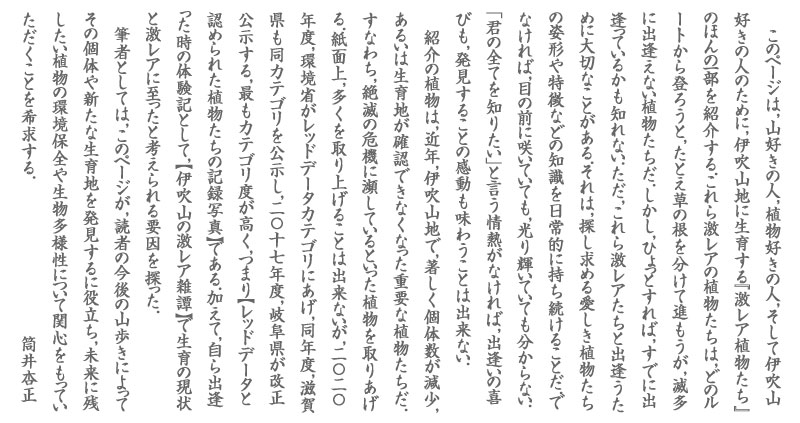 このページは，山好きの人，植物好きの人，そして伊吹山
好きの人のために，伊吹山地に生育する『激レア植物たち』
のほんの一部を紹介する．これら激レアの植物たちは，どのル
ートから登ろうと，たとえ草の根を分けて進もうが，滅多
に出逢えない植物たちだ．しかし，ひょっとすれば，すでに出
逢っているかも知れない．ただ，これら激レアたちと出逢うた
めに大切なことがある．それは，探し求める愛しき植物たち
の姿形や特徴などの知識を日常的に持ち続けることだ．で
なければ，目の前に咲いていても，光り輝いていても分からない．
「君の全てを知りたい」と言う情熱がなければ，出逢いの喜
びも，発見することの感動も味わうことは出来ない．
紹介の植物は，近年，伊吹山地で，著しく個体数が減少，
あるいは生育地が確認できなくなった重要な植物たちだ．
すなわち，絶滅の危機に瀕しているといった植物を取りあげ
る．紙面上，多くを取り上げることは出来ないが，二〇二〇
年度，環境省がレッドデータカテゴリにあげ，同年度，滋賀
県も同カテゴリを公示し，二〇十七年度，岐阜県が改正
公示する，最もカテゴリ度が高く，つまり【レッドデータと
認められた植物たちの記録写真】である．加えて，自ら出逢
った時の体験記として，【伊吹山の激レア雑譚】で生育の現状
と激レアに至ったと考えられる要因を探った．
筆者としては，このページが，読者の今後の山歩きによって
その個体や新たな生育地を発見するに役立ち，未来に残
したい植物の環境保全や生物多様性について関心をもってい
ただくことを希求する．
筒井杏正